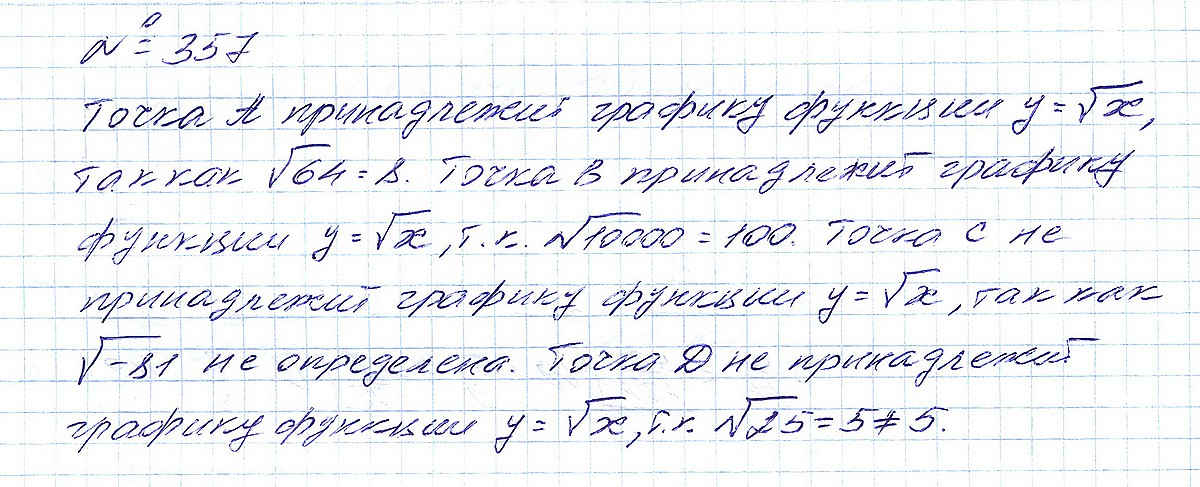 № 357
Точка А принадлежит графику функции y = √x,
так как √64 = 8. Точка В принадлежит графику
функции y = √x, т.к. √10000 = 100. Точка С не
принадлежит графику функции y = √x, так как
√-81 не определена. Точка D не принадлежит
графику функции y = √x, т.к. √25 = 5 ≠ 5.